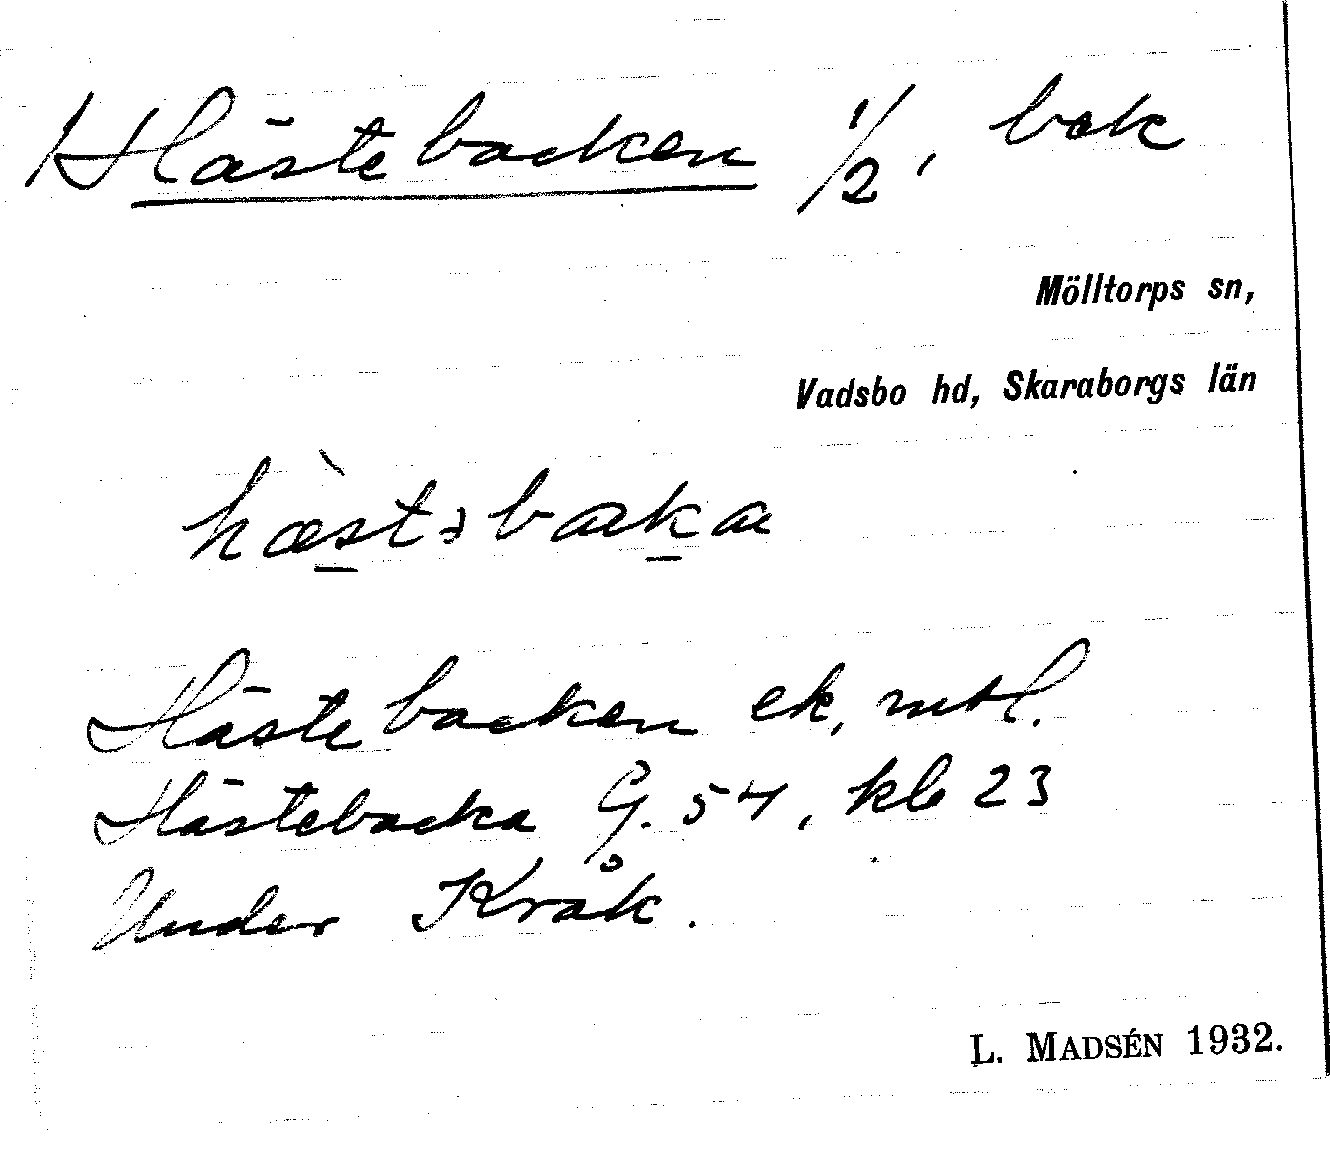 Hästebacken 1/2, bok
Mölltorps sn,
Vadsbo hd, Skaraborgs län
Hästebacken ek, mtl.
Hästebacka G. 54, kb 23
Under Kråk.
L. MADSÉN 1932.